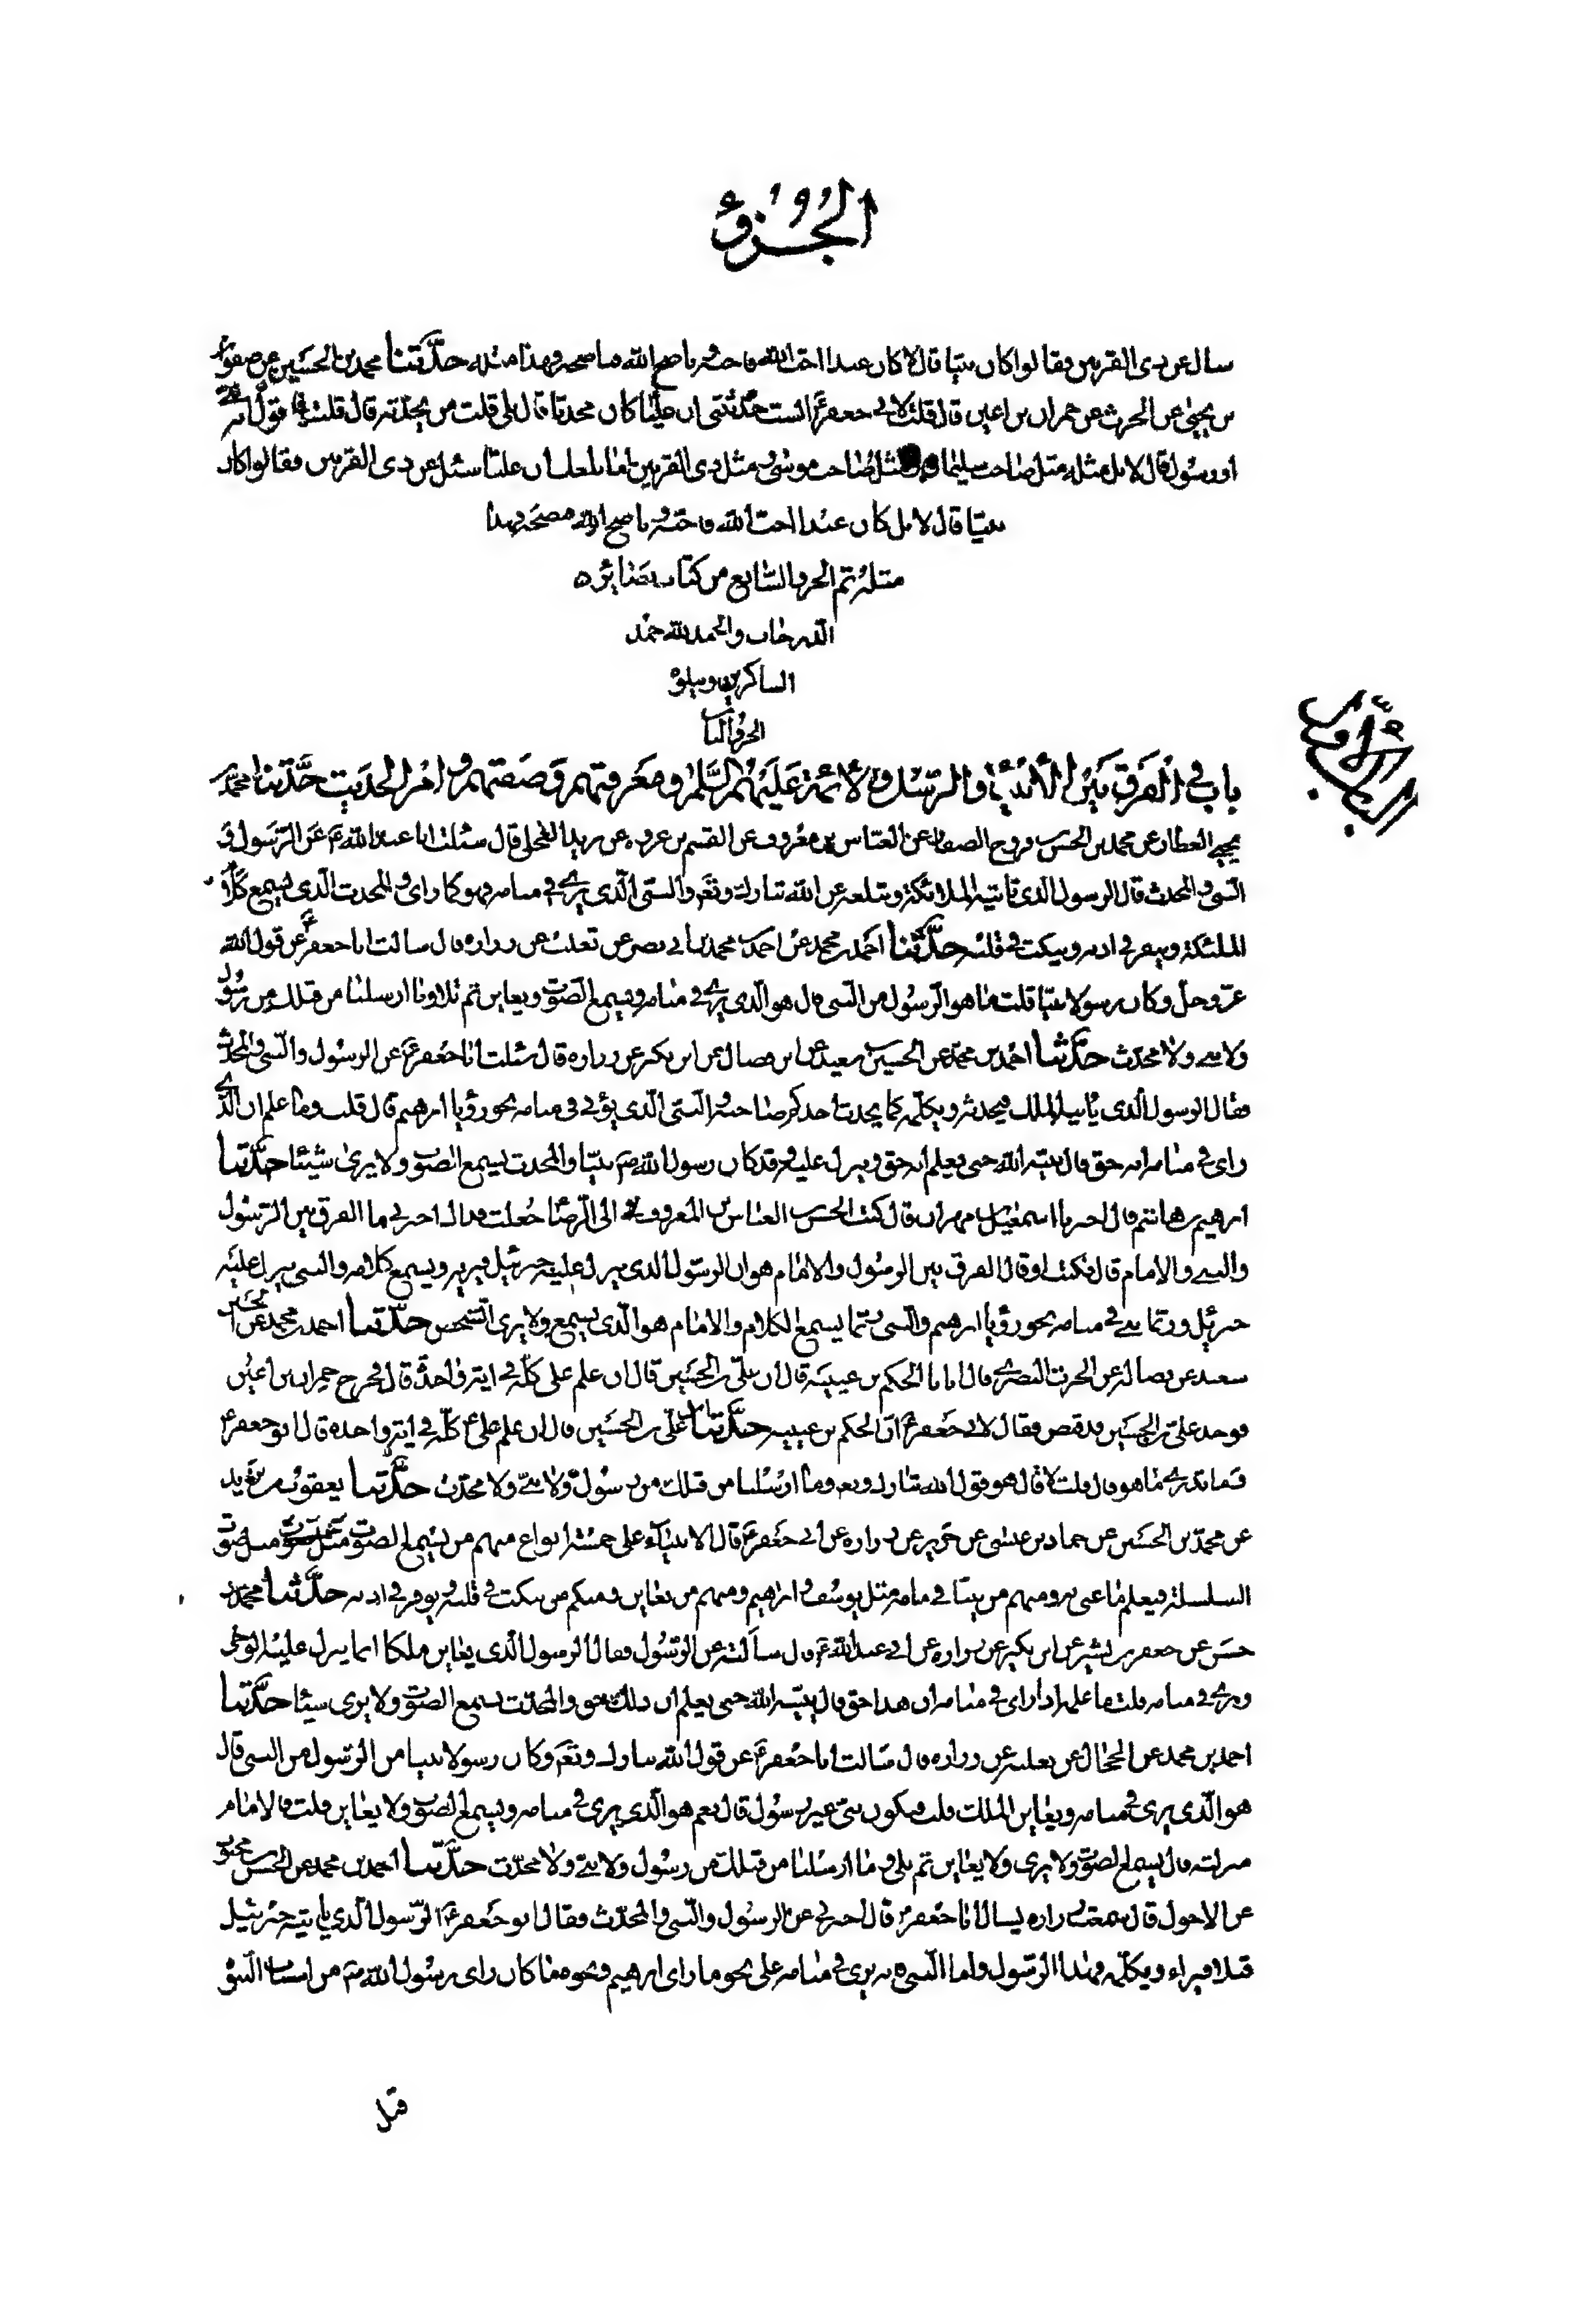 الجُزؤ
سال عن ذی القرنین فقالوا کان نبیّا قال لا کان عبدا احبّ الله فاحبّه و ناصح الله فناصحه و هذا مثله حدّثنا محمد بن الحسین عن صفوان
بن یحیی عن الحرث عن حمران بن اعین قال قلت لابی جعفرؑ الست حدّثتنی ان علیّا کان محدثا قال بلی قلت من یحدّثه قال قلت
او رسول قال لا بل مثله مثل صاحب سلیمان و مثل صاحب موسی و مثل ذی القرنین اما بلغک ان علیّا سئل عن ذی القرنین فقالوا کان
نبیّا قال لا بل کان عبدا احبّ الله فاحبّه و ناصح الله فنصحه فهذا
مثله تم الجزء السّابع من کتاب بصائر
الدرجات و الحمد لله حمد
الشاکرین و یتلوه
الجزو الثامن
الباب الاوّل
باب فی الفرق بین الأنبیاء والرّسل و الأئمة علیهم السّلم و معرفتهم و صفتهم و امر الحدیث حدّثنا محمّد بن
یحیی العطار عن محمد بن الحسن فروخ الصفار عن العبّاس بن معروف عن القسم بن عروه عن برید العجلی قال سئلت ابا عبد الله ع عن الرّسول و
النبی و المحدث قال الرسول الذی تاتیه الملائکة و تبلغه عن الله تبارک و تعم والنبی الّذی یری فی منامه فهو کما رای و المحدث الّذی یسمع کلام
الملئکة و ینقر فی اذنه و ینکت فی قلبه حدّثنا احمد بن محمد عن احمد بن محمد بن ابی نصر عن ثعلبه عن زراره قال سالت ابا جعفرؑ عن قول الله
عزّ و جلّ و کان رسولا نبیّا قلت ما هو الرّسول من النّبی قال هو الّذی یری فی منامه و یسمع الصّوت و یعاین ثم تلا و ما ارسلنا من قبلک من رسول
ولا نبی ولا محدّث حدّثنا احمد بن محمّد عن الحسین بن سعید عن ابن فضال عن ابن بکیر عن زراره قال سئلت ابا جعفرؑ عن الرسول و النّبی و المحدّث
فقال الرسول الّذی یاتیه الملک فیحدثه و یکلّمه کما یحدث احدکم صاحبه و النّبی الّذی یؤتی فی منامه نحو رؤیا ابرهیم قال قلت و ما علم ان الّذی
رای فی منامه انه حق قال یبیّنه الله حتی یعلم انه حق و ینزل علیه و قد کان رسول الله ص نبیّا و المحدث یسمع الصّوت ولا یری شیئا حدّثنا
ابرهیم بن هاشم قال اخبرنا اسمعیل بن مهران قال کتب الحسن بن العباس بن المعروفی الی الرّضا جعلت فداک اخبرنی ما الفرق بین الرّسول
والنبی و الامام قال فکتب او قال الفرق بین الرسول و الامام هو ان الرسول الذی ینزل علیه جبرئیل فیریه و یسمع کلامه و النبی ینزل علیه
جبرئیل و ربّما نبی فی منامه نحو رؤیا ابرهیم و النّبی ربّما یسمع الکلام و الامام هو الّذی یسمع ولا یری الشّخص حدّثنا احمد بن محمد عن الحسین
سعید عن فضاله عن الحرث البصری قال اتانا الحکم بن عیینه قال ان علیّ بن الحسین قال ان علم علی کلّه فی ایة واحدة قال فخرج حمران بن اعین
فوجد علیّ بن الحسین قد قبض فقال لابی جعفرؑ انّ الحکم بن عیینه حدّثنا ان علیّ بن الحسین قال ان علم علی ع کلّه فی ایة واحده قال ابو جعفرؑ
فما تدری ما هو قال قلت لا قال هو قول الله تبارک و تعم و ما ارسلنا من قبلک من رسول ولا نبی ولا محدّث حدّثنا یعقوب بن یزید
عن محمّد بن الحسین عن حماد بن عیسی عن حریز عن زراره عن ابی جعفرؑ قال الانبیاء علی خمسة انواع منهم من یسمع الصوت مثل صوت
السلسلة فیعلم ما عنی به و منهم من ینبّا فی منامه مثل یوسف و ابراهیم و منهم من یعاین و منهم من ینکت فی قلبه و یوقر فی اذنه حدّثنا محمّد بن
حسن عن جعفر بن بشیر عن ابن بکیر عن زراره عن ابی عبد الله ع قال سالته عن الرّسول فقال الرسول الّذی یعاین ملکا انما ینزل علیه الوحی
و یری فی منامه قلت فما علمه اذا رای فی منامه ان هذا حق قال یبیّنه الله حتی یعلم ان ذلک حق و المحدّث یسمع الصّوت ولا یری شیئا حدّثنا
احمد بن محمد عن الحجّال عن ثعلبه عن زراره قال سالت ابا جعفرؑ عن قول الله تبارک و تعم و کان رسولا نبیا من الرّسول من النبی قال
هو الّذی یری فی منامه و یعاین الملک قلت فیکون نبی غیر رسول قال نعم هو الّذی یری فی منامه و یسمع الصّوت ولا یعاین قلت فالامام ما
منزلته قال یسمع الصّوت ولا یری ولا یعاین ثم تلی و ما ارسلنا من قبلک من رسول ولا نبی ولا محدّث حدّثنا احمد بن محمد عن الحسن بن محبوب
عن الاحول قال سمعت زراره یسال ابا جعفرؑ قال اخبرنی عن الرسول و النّبی و المحدّث فقال ابو جعفرؑ الرّسول الّذی یاتیه جبرئیل
قبلا فیراه و یکلّمه فهذا الرّسول و اما النّبی فانه یری فی منامه علی نحو ما رای ابرهیم و نحو ما کان رای رسول الله ص من اسباب النبوّة
قبل